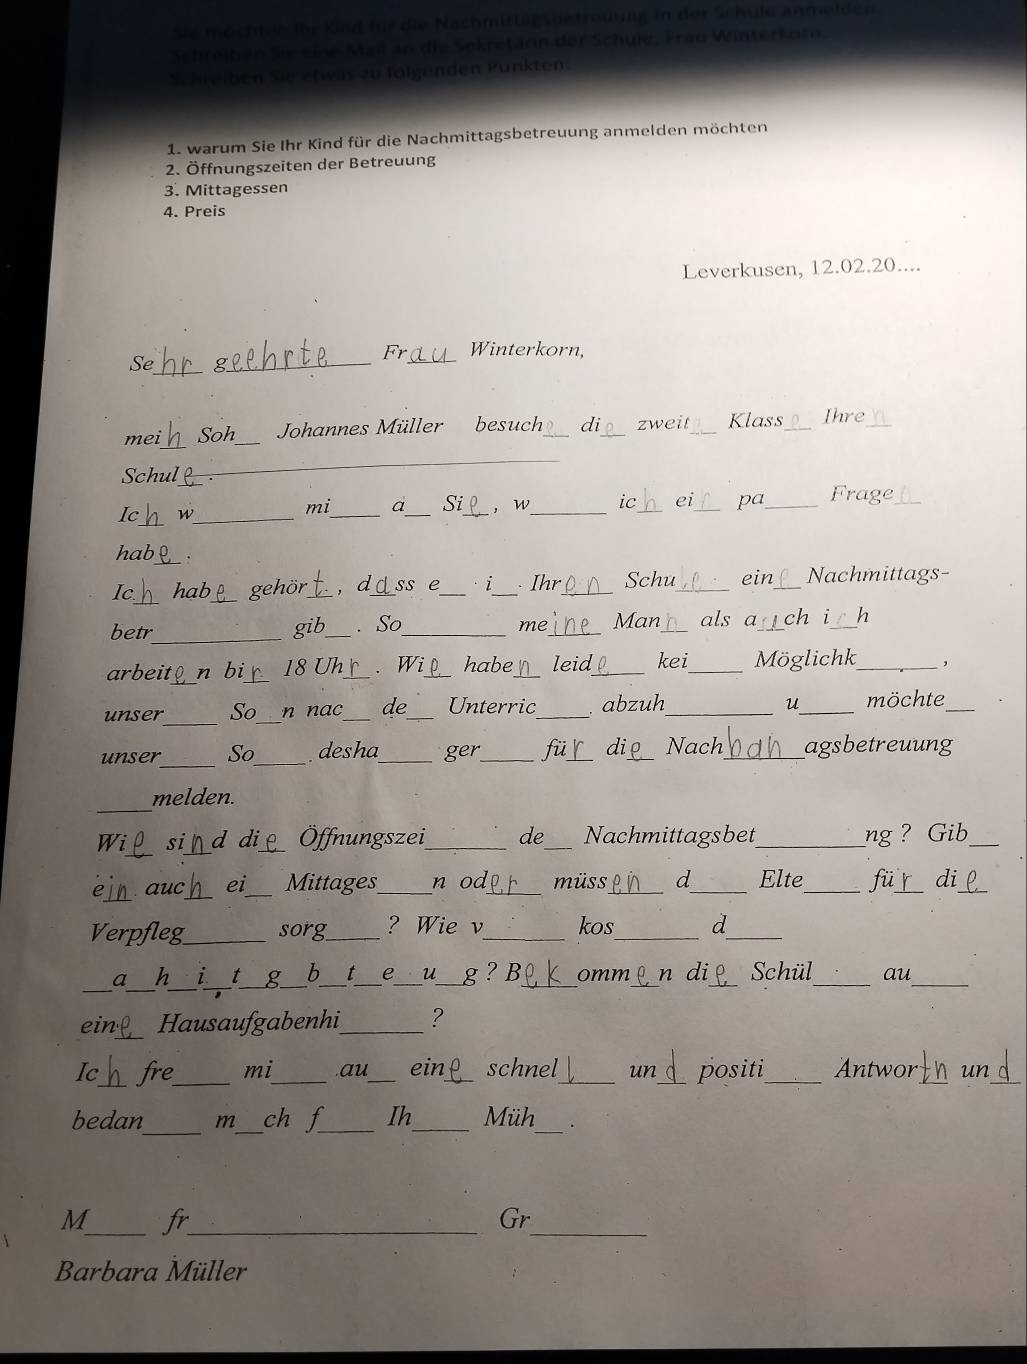 Sie möchten Ihr Kind für die Nachmittagsbetreuung in der Schule anmelden.
Schreiben Sie eine Mail an die Sekretärin der Schule, Frau Winterkorn.
Schreiben Sie etwas zu folgenden Punkten:
1. warum Sie Ihr Kind für die Nachmittagsbetreuung anmelden möchten
2. Öffnungszeiten der Betreuung
3. Mittagessen
4. Preis
Leverkusen, 12.02.20....
Sehr geehrte Frau Winterkorn,
mein Soh___ Johannes Müller besuche__ die__ zweit___ Klasse__ Ihren
Schule .
Ich w________ mi____ a__ Sie , w______ ich ein__ pa____ Fragen
habe .
Ich habe gehört , dass e__ i__ Ihren Schul____ eine__ Nachmittags-
betr__________ gib__ . So________ meine Mann als auch ich
arbeiten bin 18 Uhr . Wie haben leide____ kei____ Möglichk______ ,
unser____ So__n nac__ de__ Unterric____ abzuh________ u____ möchte__
unser____ So____ desha____ ger____ fü__ die Nachbahnagsbetreuung
____melden.
Wie sind die Öffnungszei______ de__ Nachmittagsbet________ng ? Gib__
ein auch ei__ Mittages____n oder müssen d____ Elte____ für die
Verpfleg______ sorg____ ? Wie v______ kos______ d____
__a__h__i__t__g__b__t__e__u__g ? Bekommen die Schül____ au____
eine Hausaufgabenhi______ ?
Ich fre____ mi____ au__ eine schnell____ und positi____ Antwortn und
bedan____ m__ch f____ Ih____ Müh__ .
M____ fr____________________ Gr________
Barbara Müller